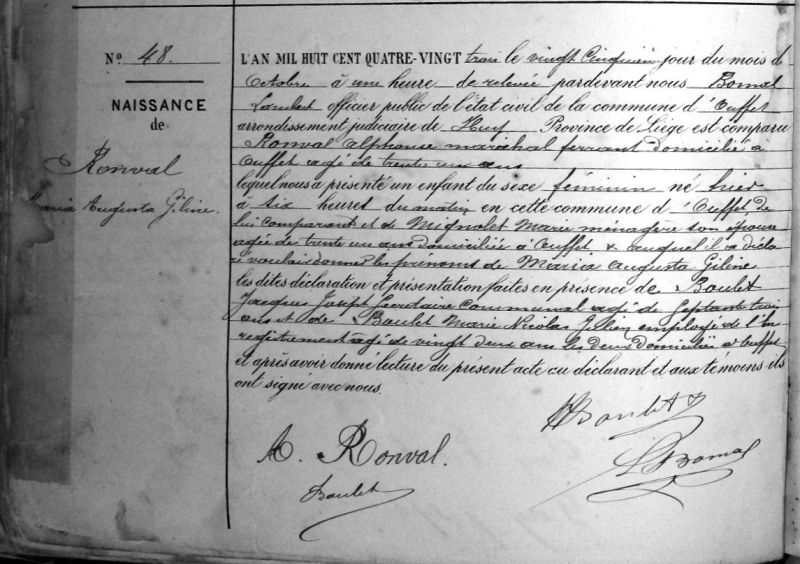 N° 48.
NAISSANCE
de
Ronval
Maria Augusta Giline.
L'AN MIL HUIT CENT QUATRE-VINGT trois le vingt cinquième jour du mois d
Octobre à une heure de relevée pardevant nous Bomal
Lambert officier public de l'état civil de la commune d'Ouffet
arrondissement judiciaire de Huy Province de Liège est comparu
Ronval Alphonse maréchal ferrant domicilié à
Ouffet agé de trente un ans
lequel nous a présenté un enfant du sexe féminin né hier
à six heures du matin en cette commune d'Ouffet, de
lui comparant et de Mignolet Marie ménagère son épouse
agée de trente un ans domiciliée à Ouffet & auquel il a décla
ré vouloir donner les prénoms de Maria Augusta Giline
les dites déclaration et présentation faites en présence de Boulet
Jacques Joseph Secrétaire communal agé de septante trois
ans et de Boulet Marie Nicolas Julien employé de l'En
registrement agé de vingt deux ans les deux domiciliés à Ouffet
et après avoir donné lecture du présent acte au déclarant et aux témoins ils
ont signé avec nous.
Boulet
A. Ronval.
L Bomal
Boulet